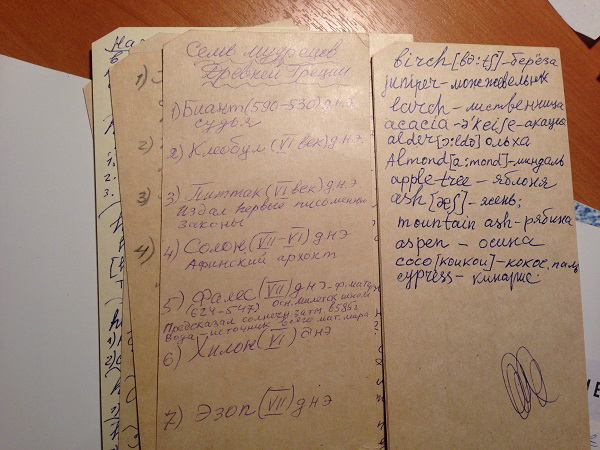 На
Семь мудрецов
Древней Греции
1) Биант (590-530) днэ
судья
2) Клеобул (VI век) днэ
3) Питтак (VI век) днэ
Издал первые письменны
Законы
4) Солон (VII-VI) днэ
Афинский архонт
5) Фалес (VII) днэ - ф. мате
(624-547) осн. милетск школы
Предсказал солнечн затм. 585г
Вода - источник всего мат. мира
6) Хилон (VI) днэ
7) Эзоп (VII) днэ
1)
2)
3)
4)
birch [bə:tʃ] - берёза
juniper - можжевельник
larch - лиственница
acacia - ə'keiʃe - акация
alder [ɔ:ldə] ольха
Almond [a:mond] - миндаль
apple tree - яблоня
ash [æʃ] - ясень;
mountain ash - рябина
aspen - осина
coco [koukou] - кокос. пальм
cypress - кипарис.